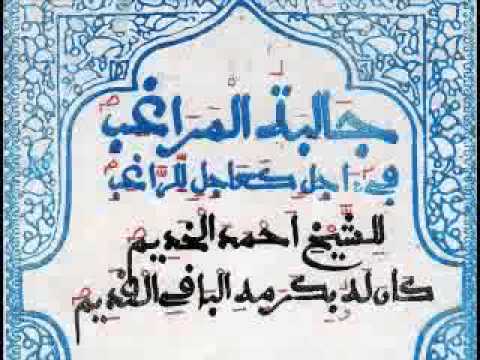 جالبة المراغب
في ءاجل كعاجل للراغب
للشيخ احمد الخديم
كان له بكرمه الباقي القديم